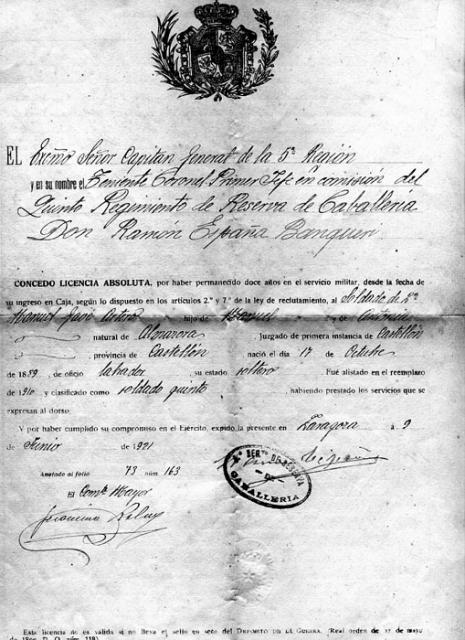 EL Excmo Señor Capitan General de la 5ª Región
y en su nombre el Teniente Coronel Primer Jefe en comisión del
Quinto Regimiento de Reserva de Caballeria
Don Ramon España
CONCEDO LICENCIA ABSOLUTA, por haber permanecido doce años en el servicio militar, desde la fecha de
su ingreso en Caja, según lo dispuesto en los artículos 2.º y 7.º de la ley de reclutamiento, al Soldado de 2ª
Manuel hijo de Manuel y de
natural de Juzgado de primera instancia de Castellón
, provincia de Castellón nació el día 17 de Octubre
de 1889, de oficio labrador, su estado soltero Fué alistado en el reemplazo
de 1910, y clasificado como soldado quinto, habiendo prestado los servicios que se
expresan al dorso.
Y por haber cumplido su compromiso en el Ejército, expido la presente en Zaragoza á 9
de Junio de 1921
Anotado al folio 73 núm. 163
El Comte Mayor
España
RESERVA
DE
CABALLERIA
Esta licencia no es válida si no lleva el sello en seco del DEPÓSITO DE LA GUERRA. (Real orden de 17 de mayo